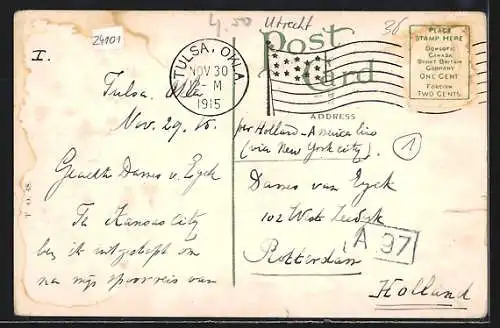 4.50
Utrecht
36
24101
I.
Post
Card
TULSA, OKLA.
NOV 30
-M
1915
PLACE
STAMP HERE
DOMESTIC
CANADA
GREAT BRITAIN
GERMANY
ONE CENT
FOREIGN
TWO CENTS
ADDRESS
Tulsa Okla
Nov. 29. 15.
Geachte Dames v. Eyck
Te Kansas City
ben ik uitgestapt om
na mijn spoorreis van
per Holland-America Line
(via New York city).
1
Dames van Eyck
102 West
Rotterdam
A 97
Holland